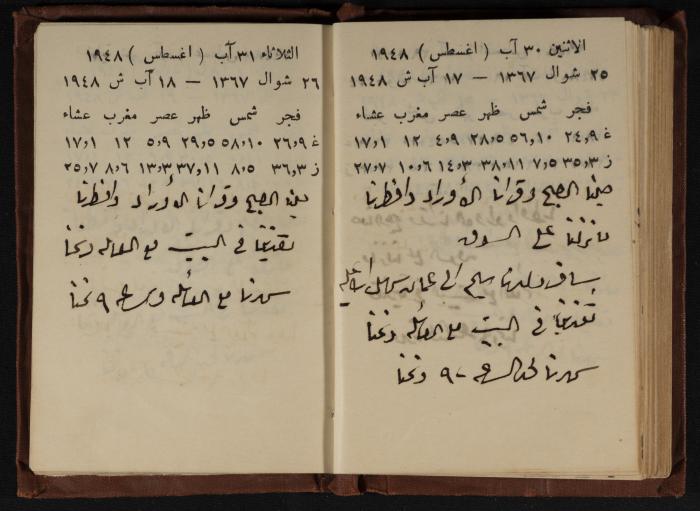 الاثنين ٣٠ آب ( اغسطس ) ١٩٤٨
٢٥ شوال ١٣٦٧ — ١٧ آب ش ١٩٤٨
فجر شمس ظهر عصر مغرب عشاء
غ ٢٤،٩ ٥٦،١٠ ٢٨،٥ ٤،٩ ١٢ ١٧،١
ز ٣٥،٣ ٧،٥ ٣٨،١١ ١٤،٣ ١٠،٦ ٢٧،٧
صلينا الصبح وقرانا الأوراد وافطرنا
ما نزلنا على السوق
سافر ولدنا الى عمان
تغدينا في البيت مع العائلة ونمنا
سهرنا لحد الساعة ٩ ونمنا
الثلاثاء ٣١ آب ( اغسطس ) ١٩٤٨
٢٦ شوال ١٣٦٧ — ١٨ آب ش ١٩٤٨
فجر شمس ظهر عصر مغرب عشاء
غ ٢٦،٩ ٥٨،١٠ ٢٩،٥ ٥،٩ ١٢ ١٧،١
ز ٣٦،٣ ٨،٥ ٣٧،١١ ١٣،٣ ٨،٦ ٢٥،٧
صلينا الصبح وقرانا الأوراد وافطرنا
تغدينا في البيت مع العائلة ونمنا
سهرنا مع العائلة ٩ نمنا